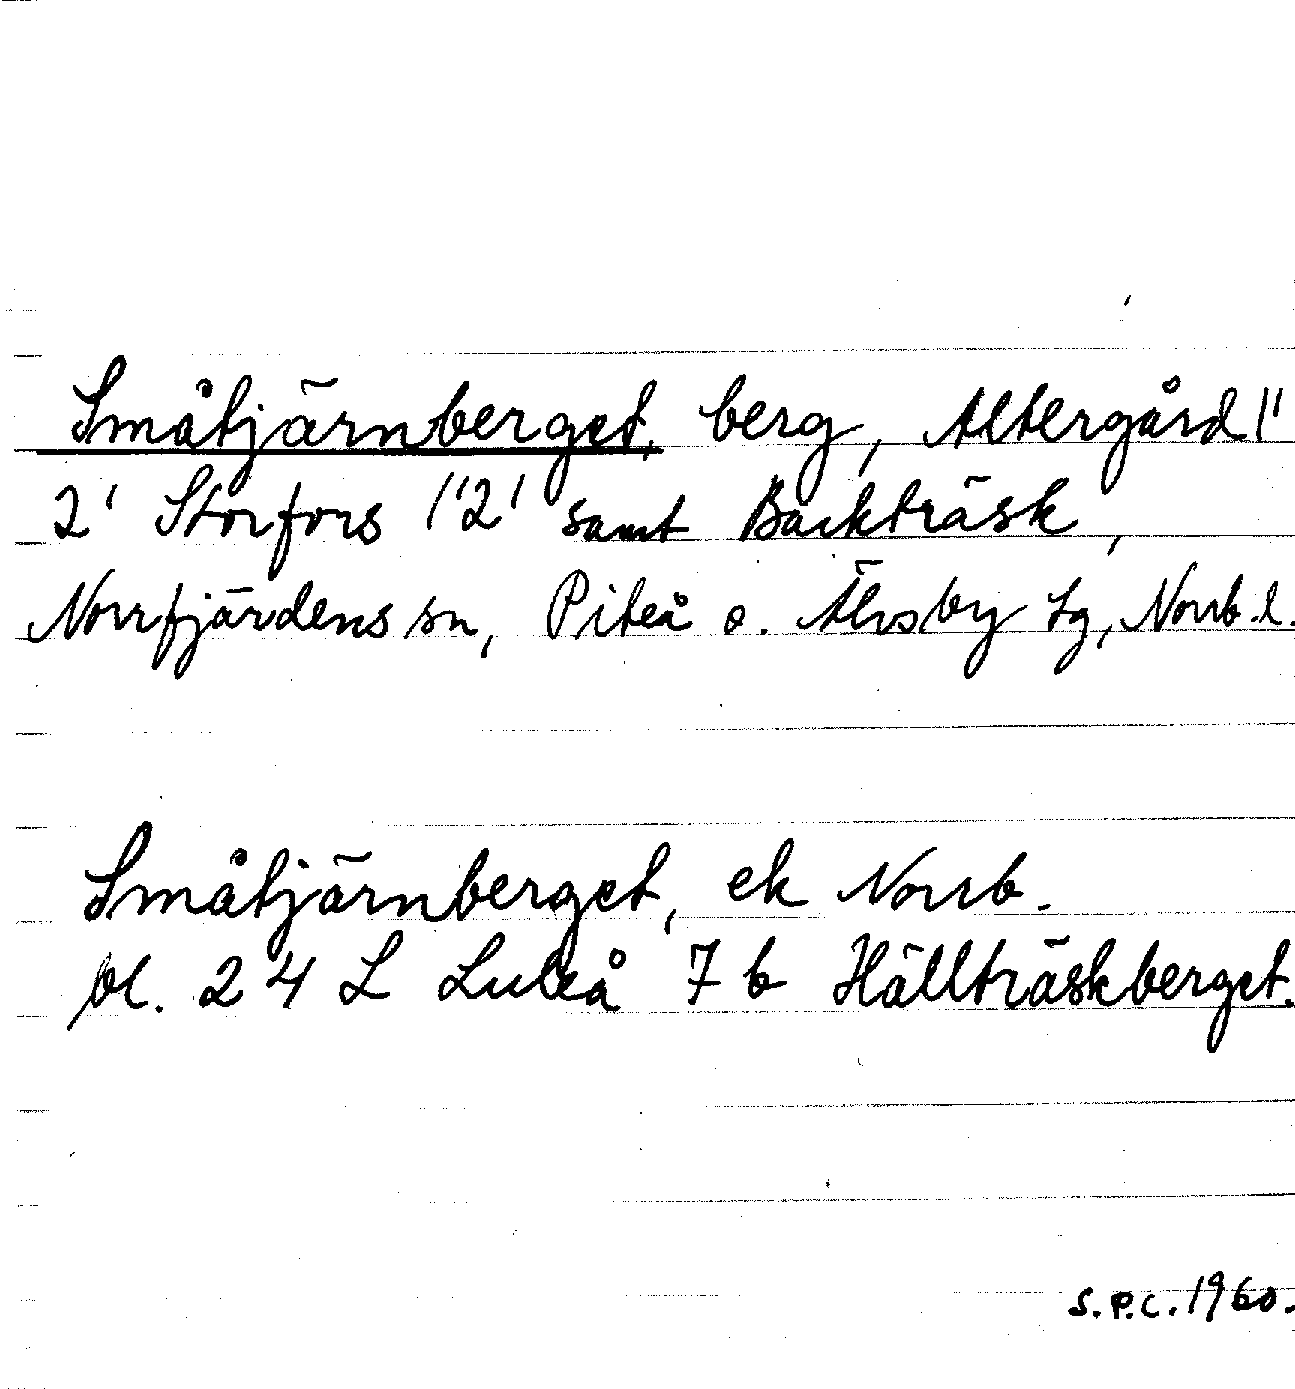 Småtjärnberget, berg, Altergård 1"
2' Storfors 1'2' samt Backträsk,
Norrfjärdens sn, Piteå o. Älvsby tg, Norrb. l.
Småtjärnberget, ek Norrb.
bl. 24 L Luleå 7 b Hällträskberget.
S.P.C. 1960.